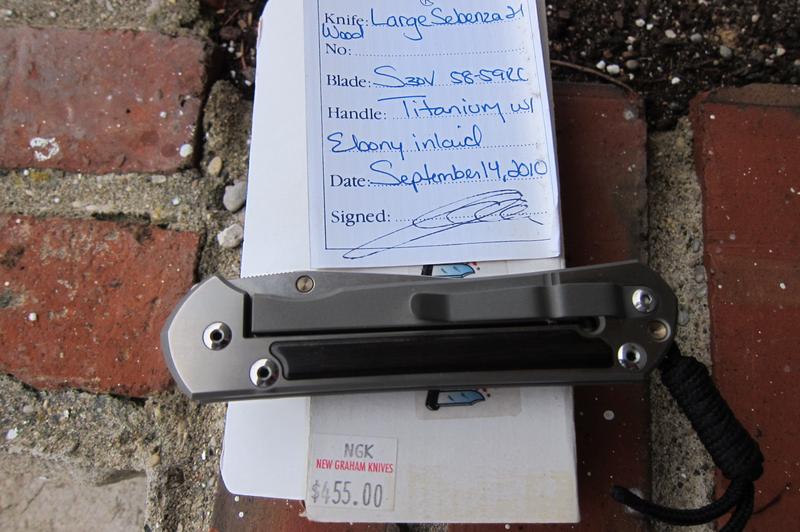 Knife: Large Sebenza 21
Wood
No:
Blade: S30V 58-59RC
Handle: Titanium w/
Ebony inlaid
Date: September 14, 2010
Signed:
NGK
NEW GRAHAM KNIVES
$455.00